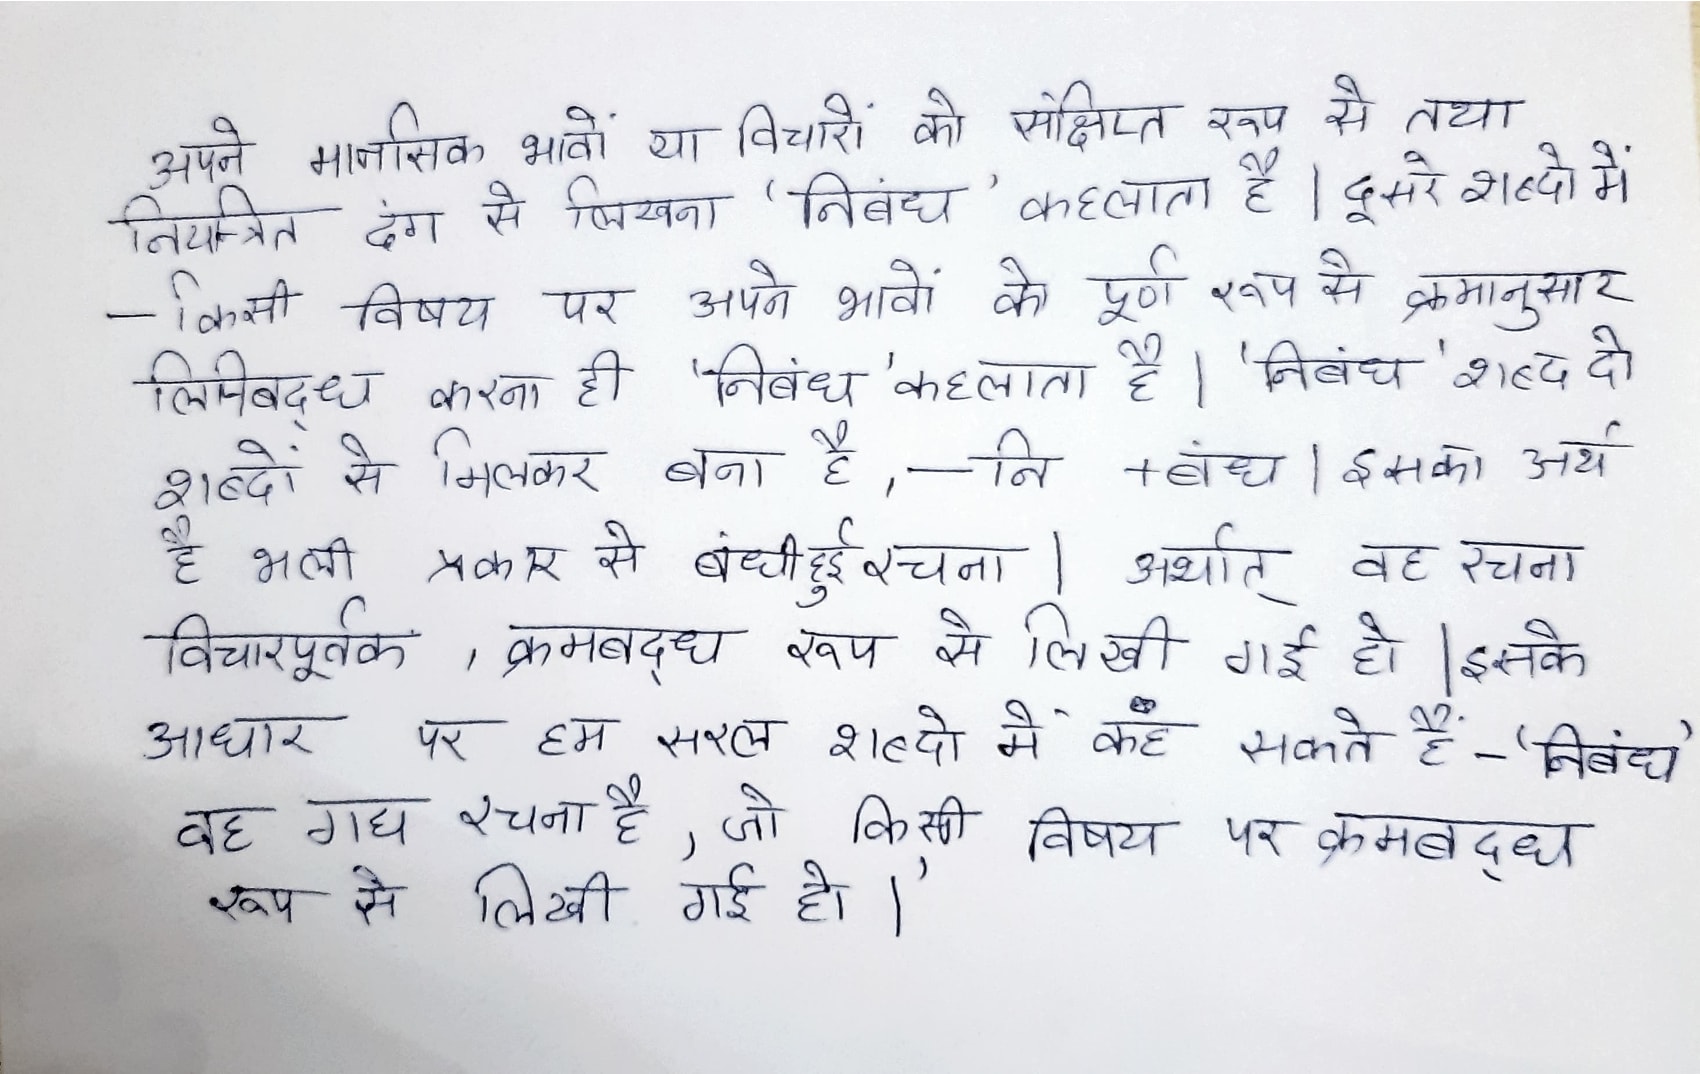 अपने मानसिक भावों या विचारों को संक्षिप्त रूप से तथा
नियन्त्रित ढंग से लिखना 'निबंध' कहलाता है | दूसरे शब्दो में
– किसी विषय पर अपने भावों को पूर्ण रूप से क्रमानुसार
लिपिबद्ध करना ही 'निबंध' कहलाता है | 'निबंध' शब्द दो
शब्दों से मिलकर बना है, – नि + बंध | इसका अर्थ
है भली प्रकार से बंधी हुई रचना | अर्थात् वह रचना
विचारपूर्वक , क्रमबद्ध रूप से लिखी गई हो | इसके
आधार पर हम सरल शब्दो में कह सकते हैं – 'निबंध'
वह गद्य रचना है, जो किसी विषय पर क्रमबद्ध
रूप से लिखी गई हो |'